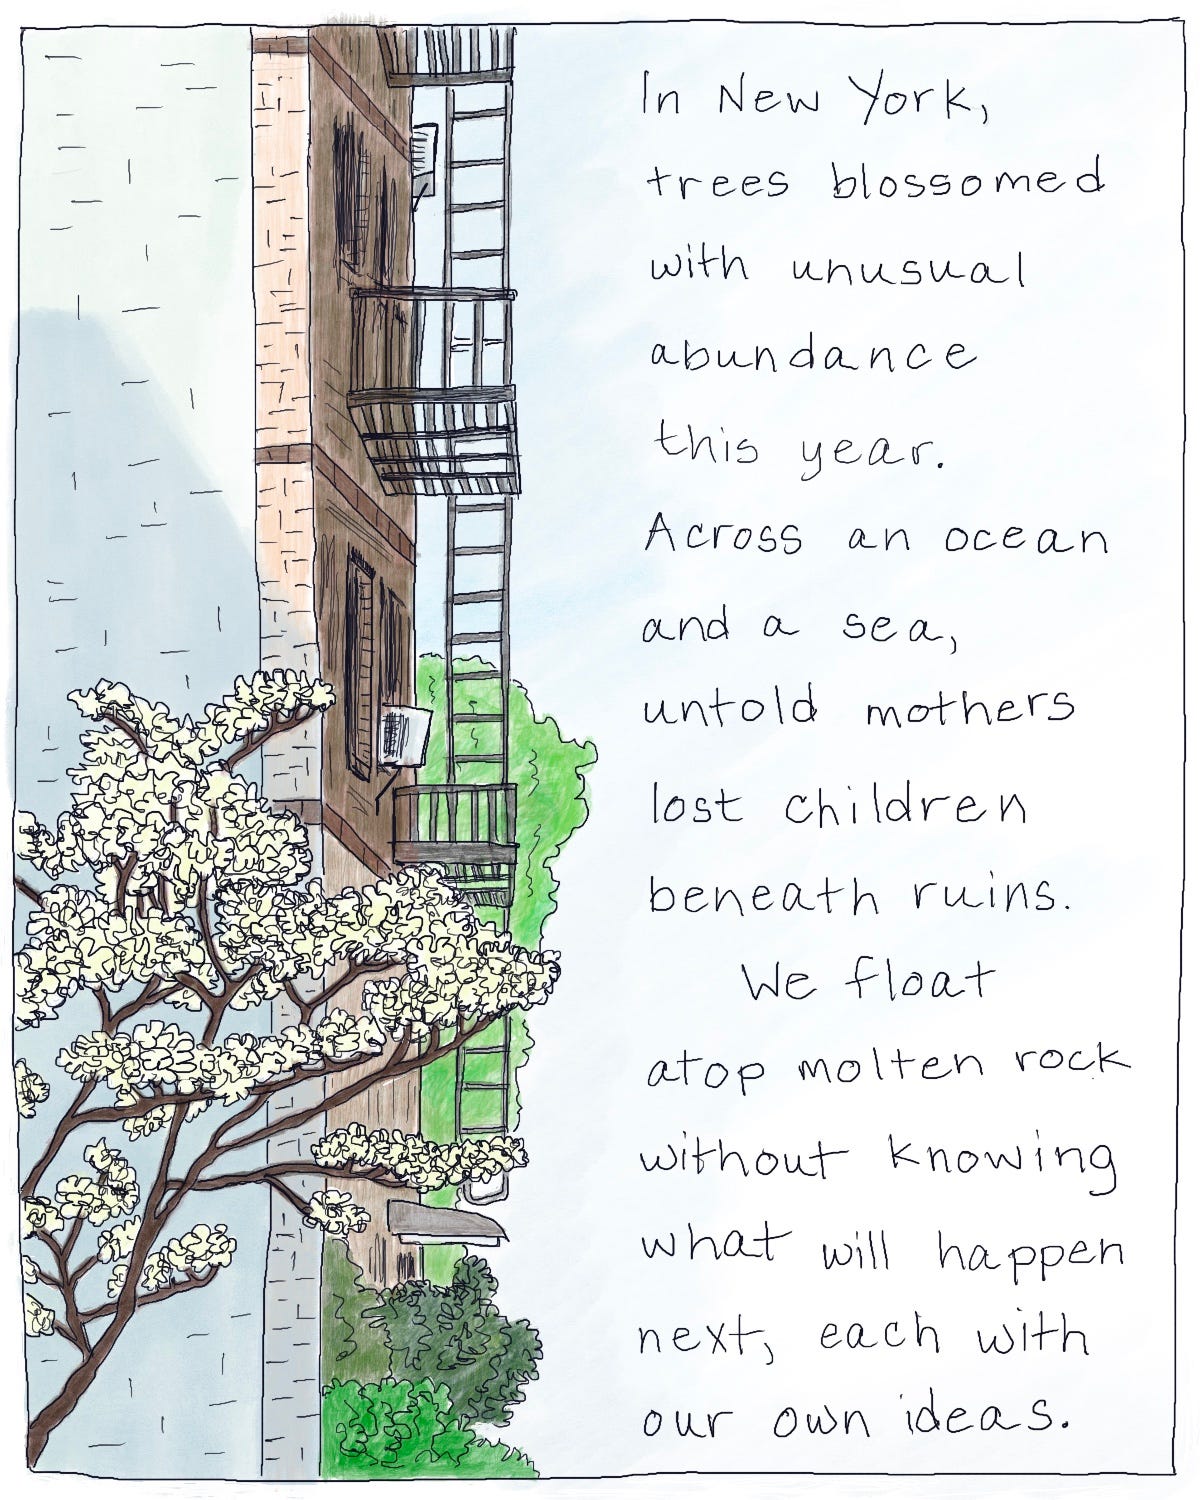 In New York,
trees blossomed
with unusual
abundance
this year.
Across an ocean
and a sea,
untold mothers
lost children
beneath ruins.
We float
atop molten rock
without knowing
what will happen
next, each with
our own ideas.